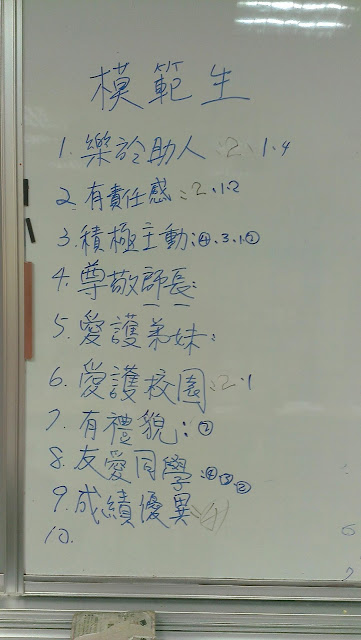 模範生
1. 樂於助人:2、1.4
2. 有責任感:2.1.2
3. 積極主動:④.3.1②
4. 尊敬師長:
5. 愛護弟妹:
6. 愛護校園:2.1
7. 有禮貌:②
8. 友愛同學:④③②
9. 成績優異:
10.